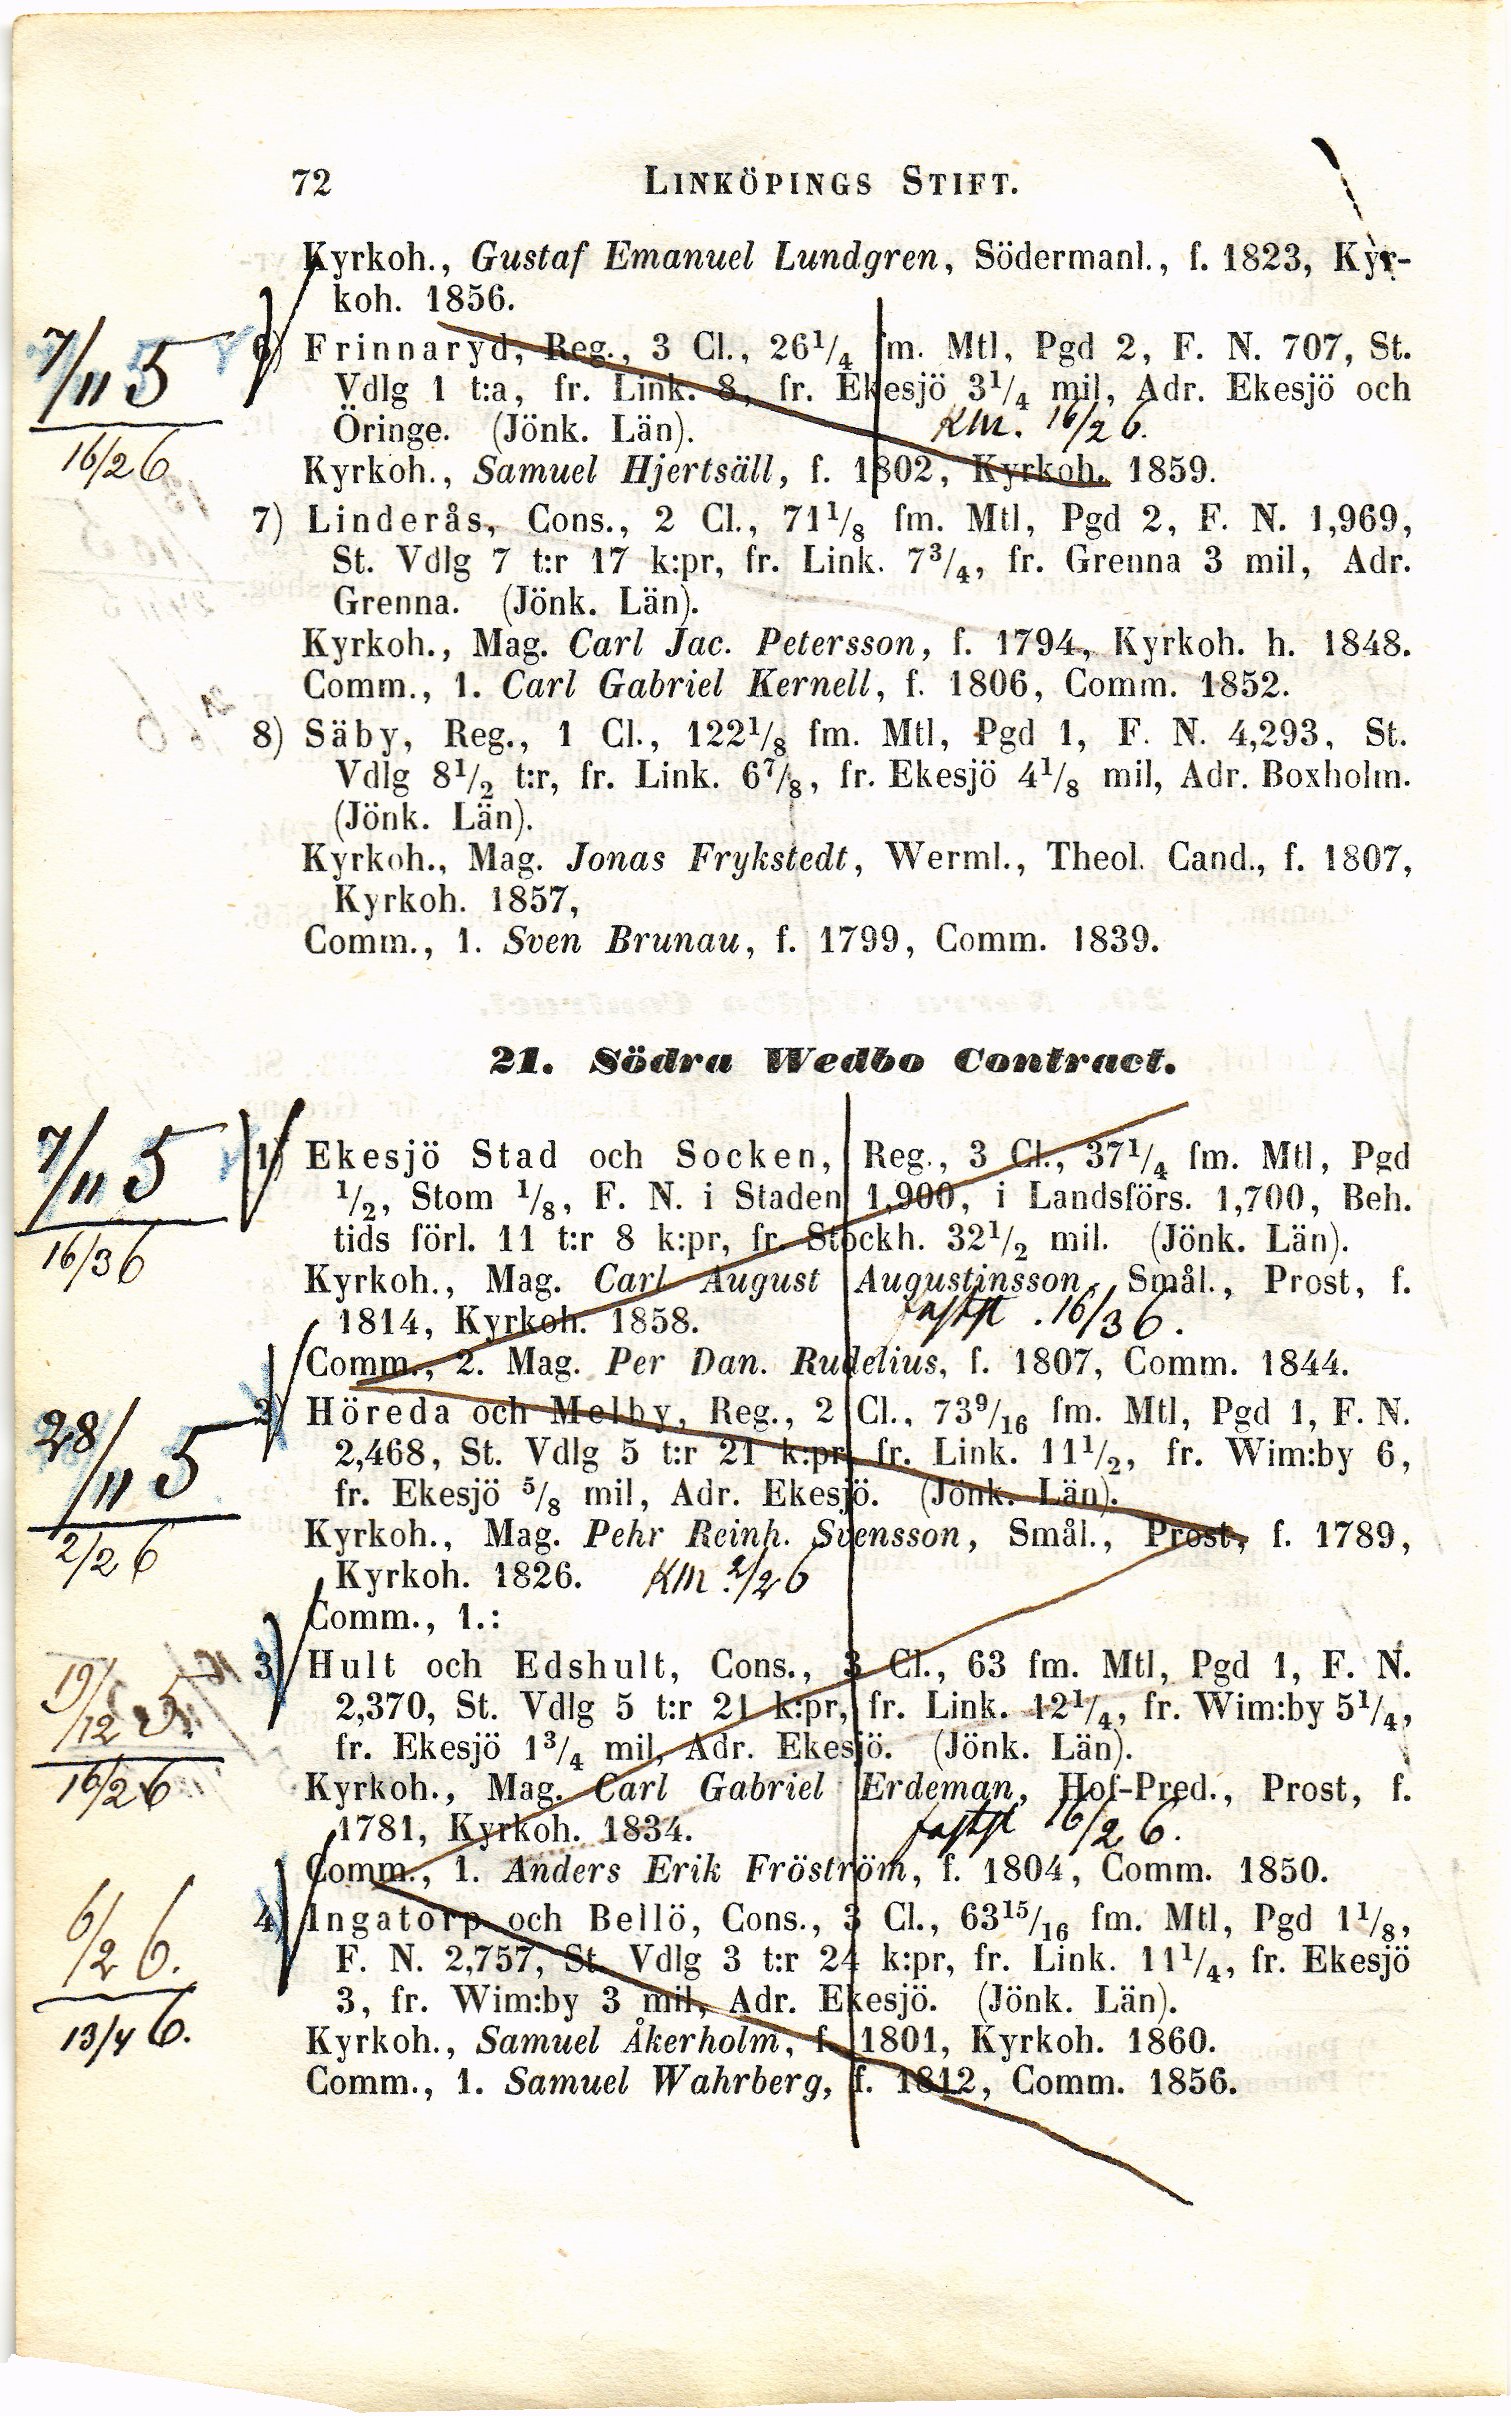 72 LINKÖPINGS STIFT.
Kyrkoh., Gustaf Emanuel Lundgren, Södermanl., f. 1823, Kyr-
koh. 1856.
7/11 5
6) Frinnaryd, Reg., 3 Cl., 26 1/4 fm. Mtl, Pgd 2, F. N. 707, St.
Vdlg 1 t:a, fr. Link. 8, fr. Ekesjö 3 1/4 mil, Adr. Ekesjö och
Öringe. (Jönk. Län). KM. 16/2 6.
16/2 6
Kyrkoh., Samuel Hjertsäll, f. 1802, Kyrkoh. 1859.
7) Linderås, Cons., 2 Cl., 71 1/8 fm. Mtl, Pgd 2, F. N. 1,969,
St. Vdlg 7 t:r 17 k:pr, fr. Link. 7 3/4, fr. Grenna 3 mil, Adr.
Grenna. (Jönk. Län).
Kyrkoh., Mag. Carl Jac. Petersson, f. 1794, Kyrkoh. h. 1848.
Comm., 1. Carl Gabriel Kernell, f. 1806, Comm. 1852.
8) Säby, Reg., 1 Cl., 122 1/8 fm. Mtl, Pgd 1, F. N. 4,293, St.
Vdlg 8 1/2 t:r, fr. Link. 6 7/8, fr. Ekesjö 4 1/8 mil, Adr. Boxholm.
(Jönk. Län).
Kyrkoh., Mag. Jonas Frykstedt, Werml., Theol. Cand., f. 1807,
Kyrkoh. 1857,
Comm., 1. Sven Brunau, f. 1799, Comm. 1839.
21. Södra Wedbo Contract.
7/11 5
1) Ekesjö Stad och Socken, Reg., 3 Cl., 37 1/4 fm. Mtl, Pgd
1/2, Stom 1/8, F. N. i Staden 1,900, i Landsförs. 1,700, Beh.
tids förl. 11 t:r 8 k:pr, fr. Stockh. 32 1/2 mil. (Jönk. Län).
16/3 6
Kyrkoh., Mag. Carl August Augustinsson, Smål., Prost, f.
1814, Kyrkoh. 1858. 16/3 6.
Comm., 2. Mag. Per Dan. Rudelius, f. 1807, Comm. 1844.
28/11 5
2) Höreda och Melby, Reg., 2 Cl., 73 9/16 fm. Mtl, Pgd 1, F. N.
2,468, St. Vdlg 5 t:r 21 k:pr, fr. Link. 11 1/2, fr. Wim:by 6,
fr. Ekesjö 5/8 mil, Adr. Ekesjö. (Jönk. Län).
2/2 6
Kyrkoh., Mag. Pehr Reinh. Svensson, Smål., Prost, f. 1789,
Kyrkoh. 1826. KM. 2/2 6
Comm., 1.:
19/12 5
3) Hult och Edshult, Cons., 3 Cl., 63 fm. Mtl, Pgd 1, F. N.
2,370, St. Vdlg 5 t:r 21 k:pr, fr. Link. 12 1/4, fr. Wim:by 5 1/4,
fr. Ekesjö 1 3/4 mil, Adr. Ekesjö. (Jönk. Län).
16/2 6
Kyrkoh., Mag. Carl Gabriel Erdeman, Hof-Pred., Prost, f.
1781, Kyrkoh. 1834. 16/2 6.
Comm., 1. Anders Erik Fröström, f. 1804, Comm. 1850.
6/2 6.
4) Ingatorp och Bellö, Cons., 3 Cl., 63 15/16 fm. Mtl, Pgd 1 1/8,
F. N. 2,757, St. Vdlg 3 t:r 24 k:pr, fr. Link. 11 1/4, fr. Ekesjö
3, fr. Wim:by 3 mil, Adr. Ekesjö. (Jönk. Län).
13/4 6.
Kyrkoh., Samuel Åkerholm, f. 1801, Kyrkoh. 1860.
Comm., 1. Samuel Wahrberg, f. 1812, Comm. 1856.